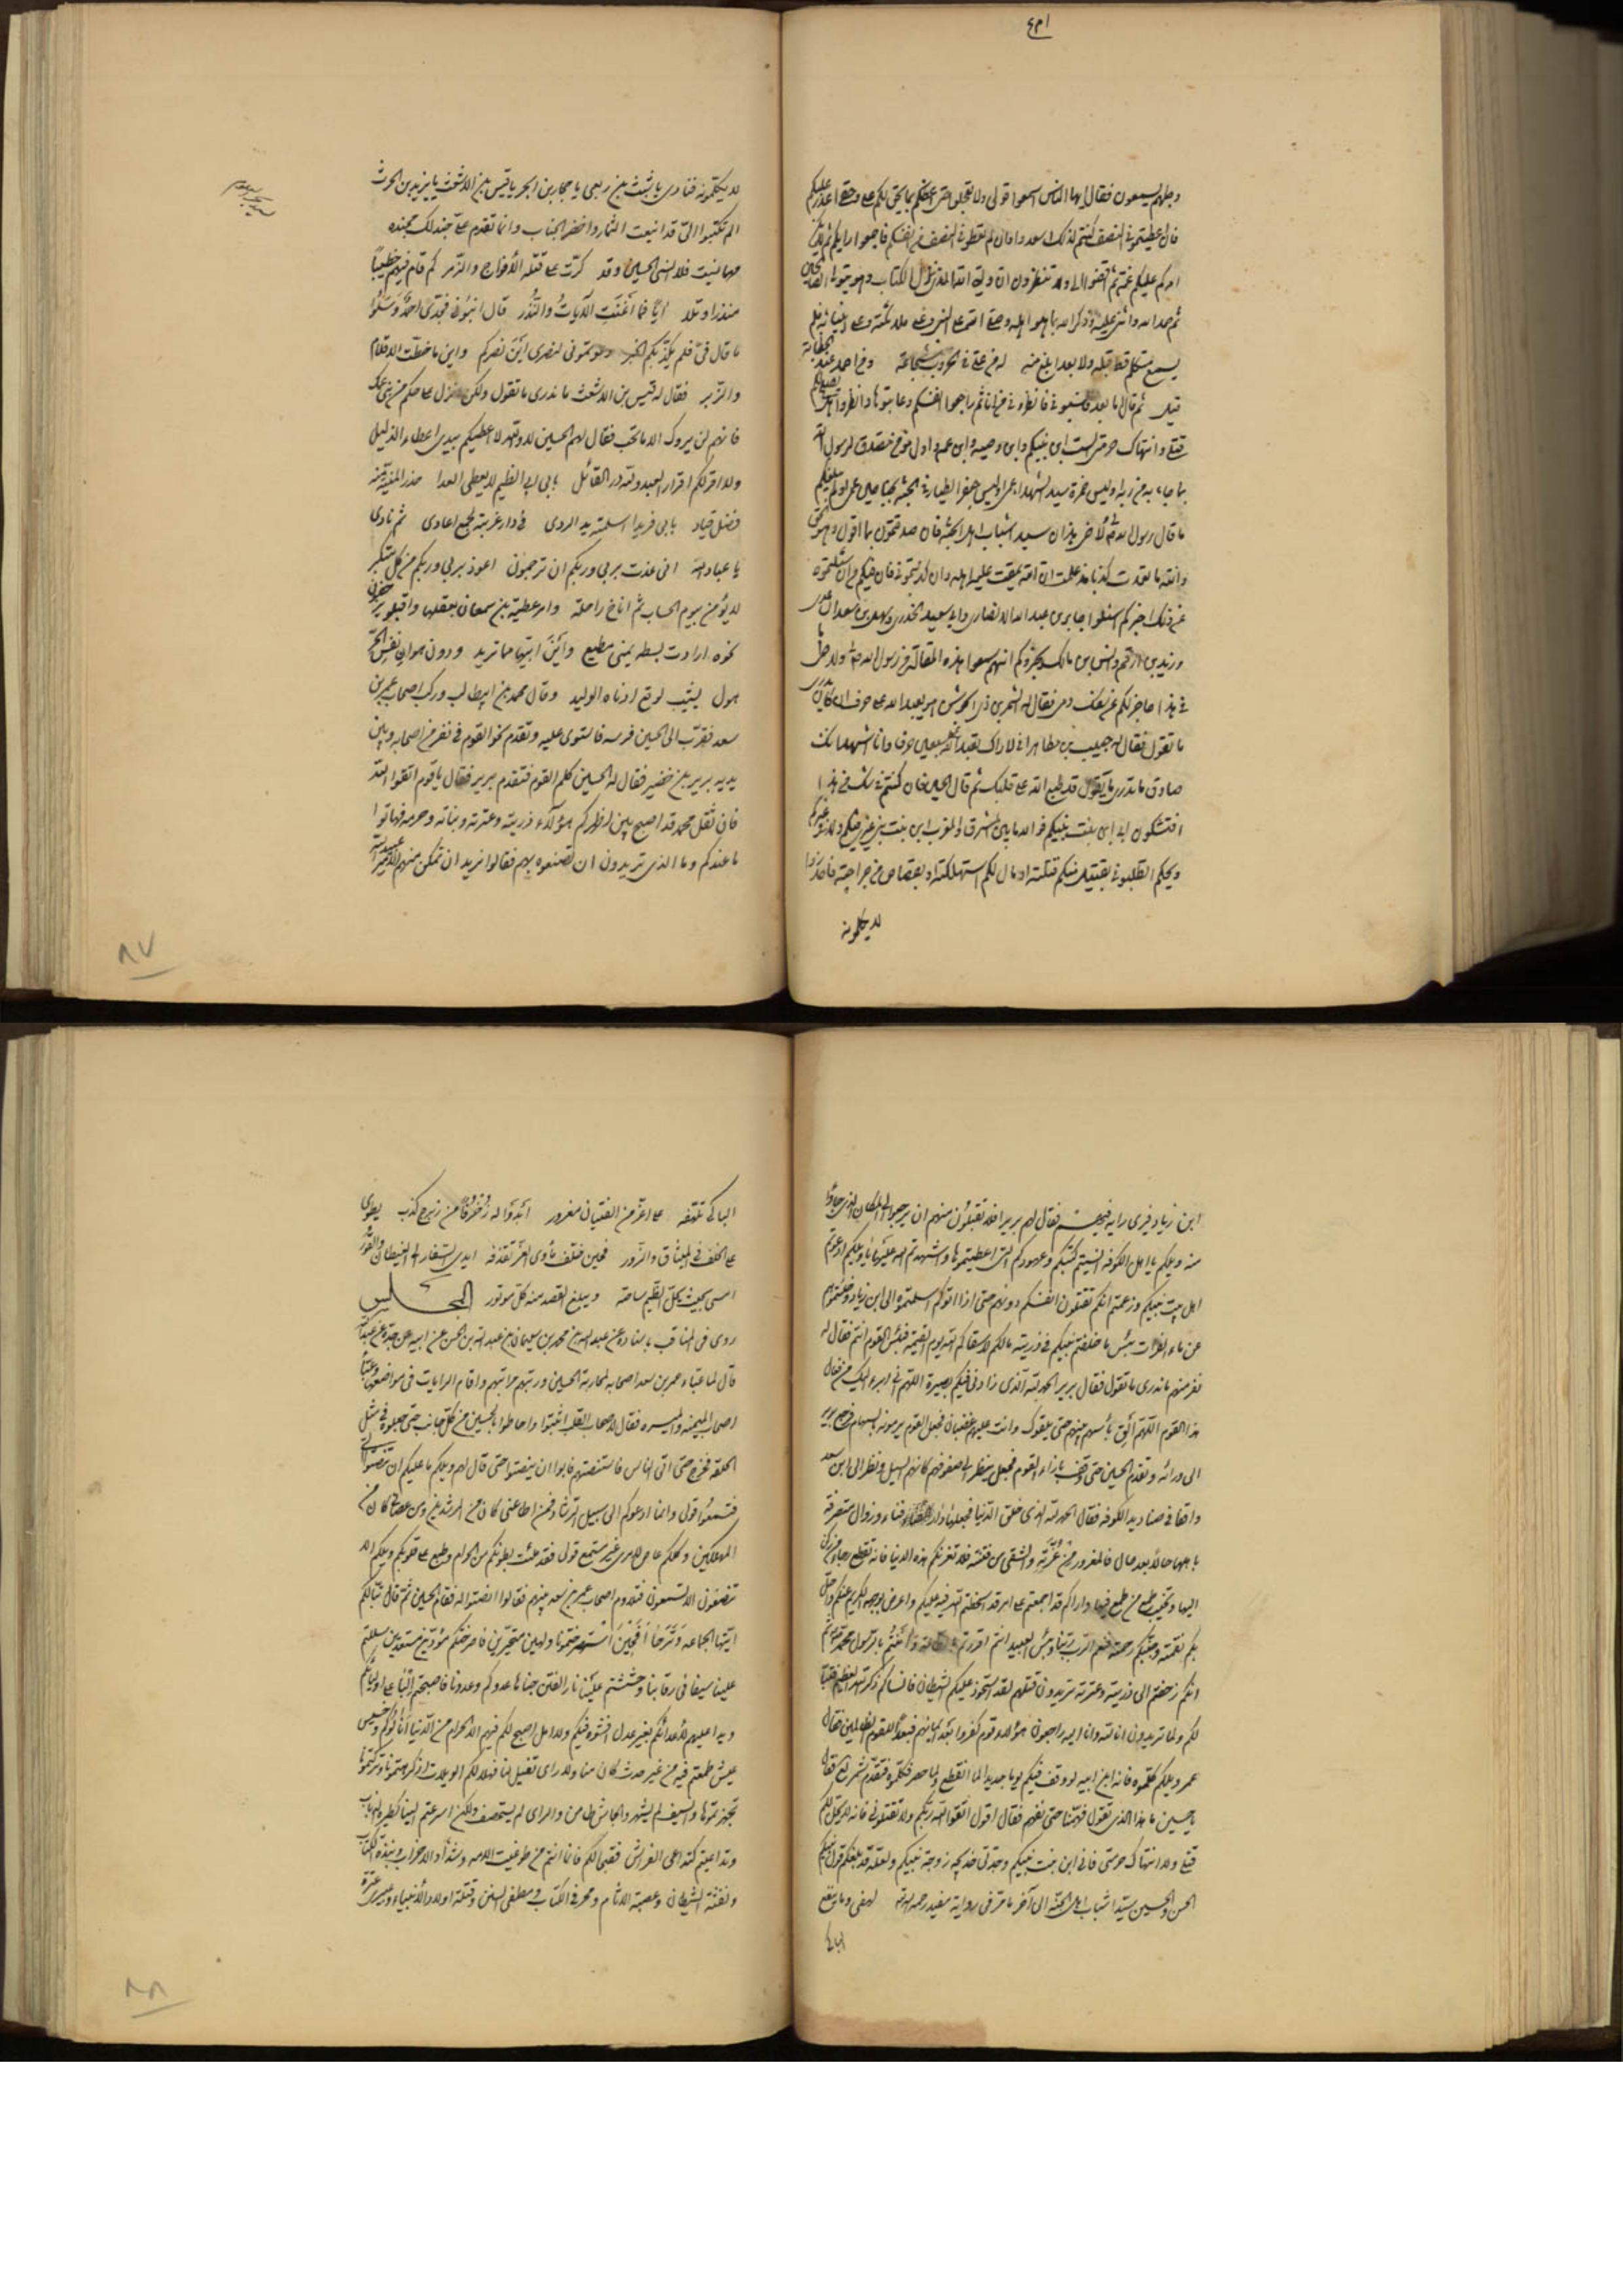 وجلهم يسمعون فقال ايها الناس اسمعوا قولى ولا تعجلوا حتى اعظكم بما يحق لكم على وحتى اعذر عليكم
فان اعطيتمونى النصف كنتم لذلك اسعد وان لم تعطونى النصف من انفسكم فاجمعوا رايكم ثم لا يكن
امركم عليكم غمة ثم اقضوا الى ولا تنظرون ان وليى الله الذى نزل الكتاب وهو يتولى الصالحين
ثم حمد الله واثنى عليه وذكر الله بما هو اهله وصلى على النبى وعلى ملائكته وعلى انبيائه فلم
يسمع متكلم قط قبله ولا بعده ابلغ منه
ثم قال اما بعد فانسبونى فانظروا من انا ثم راجعوا انفسكم وعاتبوها وانظروا هل يصلح لكم
قتلى وانتهاك حرمتى الست ابن بنت نبيكم وابن وصيه وابن عمه واول مؤمن مصدق لرسول الله
بما جاء به من ربه اوليس حمزة سيد الشهداء عمى اوليس جعفر الطيار فى الجنة بجناحين عمى اولم يبلغكم
ما قال رسول الله لى ولاخى هذان سيدا شباب اهل الجنة فان صدقتمونى بما اقول وهو الحق
والله ما تعمدت كذبا منذ علمت ان الله يمقت عليه اهله وان كذبتمونى فان فيكم من ان سئلتموه
عن ذلك اخبركم اسئلوا جابر بن عبد الله الانصارى وابا سعيد الخدرى وسهل بن سعد الساعدى
وزيد بن ارقم وانس بن مالك يخبروكم انهم سمعوا هذه المقالة من رسول الله لى ولاخى اما
فى هذا حاجز لكم عن سفك دمى فقال له الشمر بن ذى الجوشن هو يعبد الله على حرف ان كان يدرى
ما تقول فقال له حبيب بن مظاهر انى لاراك تعبد الله على سبعين حرفا وانا اشهد انك
صادق ما تدرى ما يقول قد طبع الله على قلبك ثم قال الحسين فان كنتم فى شك من هذا
افتشكون انى ابن بنت نبيكم فوالله ما بين المشرق والمغرب ابن بنت نبى غيرى فيكم ولا فى غيركم
ويحكم اتطلبونى بقتيل منكم قتلته او مال لكم استهلكته او بقصاص من جراحة فاخذوا
لا يكلمونه
لا يكلمونه فنادى يا شبث بن ربعى يا حجار بن ابجر يا قيس بن الاشعث يا يزيد بن الحرث
الم تكتبوا الى قد اينعت الثمار واخضر الجناب وانما تقدم على جند لك مجنده
مهما نسيت فلا انسى الحسين وقد كرت على قتله الافواج والزمر كم قام فيهم خطيبا
منذرا وتلا ايا فما اغنت الآيات والنذر قال انسبونى فجدى احمد وسلوا
ما قال فى فلم يكذبكم الخبر دعوتمونى لنصرى اين نصركم واين ما خطت الاقلام
والزبر فقال له قيس بن الاشعث ما ندرى ما تقول ولكن انزل على حكم بنى عمك
فانهم لن يروك الا ما تحب فقال لهم الحسين لا والله لا اعطيكم بيدى اعطاء الذليل
ولا اقر لكم اقرار العبيد ولله در القائل بابى ابى الضيم لا يعطى العدا حذر المنية منه
فضل قياد بابى فريدا اسلمته يد الردى فى دار غربته لجمع اعادى ثم نادى
يا عباد الله انى عذت بربى وربكم ان ترجمون اعوذ بربى وربكم من كل متكبر
لا يؤمن بيوم الحساب ثم اناخ راحلته وامر عقبة بن سمعان بعقلها واقبلوا يزحفون
نحوه ارادت بسطه يمنى مطيع واين ابيها ما تريد ودون هوان نفس الحر
هول يشيب لوقع ادناه الوليد وقال محمد بن ابيطالب وركب اصحاب عمر بن
سعد فقرب الى الحسين فرسه فاستوى عليه وتقدم نحو القوم فى نفر من اصحابه وبين
يديه برير بن خضير فقال له الحسين كلم القوم فتقدم برير فقال يا قوم اتقوا الله
فان ثقل محمد قد اصبح بين اظهركم هؤلاء ذريته وعترته وبناته وحرمه فهاتوا
ما عندكم وما الذى تريدون ان تصنعوه بهم فقالوا نريد ان نمكن منهم الامير عبيد الله
٨٧
ابن زياد فيرى رايه فيهم فقال لهم برير افلا تقبلون منهم ان يرجعوا الى المكان الذى جاؤا
منه ويلكم يا اهل الكوفه انسيتم كتبكم وعهودكم التى اعطيتموها واشهدتم الله عليها يا ويلكم ادعوتم
اهل بيت نبيكم وزعمتم انكم تقتلون انفسكم دونهم حتى اذا اتوكم اسلمتموهم الى ابن زياد وحلئتموهم
عن ماء الفرات بئس ما خلفتم نبيكم فى ذريته ما لكم لا سقاكم الله يوم القيمه فبئس القوم انتم فقال له
نفر منهم ما ندرى ما تقول فقال برير الحمد لله الذى زادنى فيكم بصيرة اللهم انى ابرء اليك من فعال
هذا القوم اللهم الق بأسهم بينهم حتى يلقوك وانت عليهم غضبان فجعل القوم يرمونه بالسهام فرجع برير
الى ورائه وتقدم الحسين حتى وقف بازاء القوم فجعل ينظر الى صفوفهم كانهم السيل ونظر الى ابن سعد
واقفا فى صناديد الكوفه فقال الحمد لله الذى خلق الدنيا فجعلها دار فناء وزوال متصرفة
باهلها حالا بعد حال فالمغرور من غرته والشقى من فتنته فلا تغرنكم هذه الدنيا فانه تقطع رجاء من ركن
اليها وتخيب طمع من طمع فيها واراكم قد اجتمعتم على امر قد اسخطتم الله فيه عليكم واعرض بوجهه الكريم عنكم واحل
بكم نقمته وجنبكم رحمته فنعم الرب ربنا وبئس العبيد انتم اقررتم بالطاعة وآمنتم بالرسول محمد ثم
انكم زحفتم الى ذريته وعترته تريدون قتلهم لقد استحوذ عليكم الشيطان فانساكم ذكر الله العظيم فتبا
لكم ولما تريدون انا لله وانا اليه راجعون هؤلاء قوم كفروا بعد ايمانهم فبعدا للقوم الظالمين فقال
عمر ويلكم كلموه فانه ابن ابيه لو وقف فيكم يوما جديدا لما انقطع ولما حصر فكلموه فتقدم شمر فقال
يا حسين ما هذا الذى تقول فهمنا حتى نفهم فقال اقول اتقوا الله ربكم ولا تقتلونى فانه لا يحل لكم
قتلى ولا انتهاك حرمتى فانى ابن بنت نبيكم وجدتى خديجه زوجة نبيكم ولعله قد بلغكم قول نبيكم
الحسن والحسين سيدا شباب اهل الجنه الى آخر ما مر فى رواية مفيد رحمه الله لهفى وما ينفع
الباكى تلهفه على اعز من الفتيان مغرور ابدوا له زخرفا من زبرج كذب يطوى
على الخلف فى الميثاق والزور
امسى بحيث يحل الضيم ساحته ويبلغ القصد منه كل موتور المجلس
روى فى المناقب باسناده عن عبد الله بن محمد بن سليمان بن عبد الله بن الحسن عن ابيه عن جده عن عبد الله
قال لما عباء عمر بن سعد اصحابه لمحاربة الحسين ورتبهم مراتبهم واقام الرايات فى مواضعها وعبأ
اصحاب الميمنه والميسره فقال لاصحاب القلب اثبتوا واحاطوا بالحسين من كل جانب حتى جعلوه فى مثل
الحلقه فخرج حتى اتى الناس فاستنصتهم فابوا ان ينصتوا حتى قال لهم ويلكم ما عليكم ان تنصتوا الى
فتسمعوا قولى وانما ادعوكم الى سبيل الرشاد فمن اطاعنى كان من المرشدين ومن عصانى كان من
المهلكين وكلكم عاص لامرى غير مستمع قولى فقد ملئت بطونكم من الحرام وطبع على قلوبكم ويلكم الا
تنصتون الا تسمعون فتلاوم اصحاب عمر بن سعد بينهم فقالوا انصتوا له فقام الحسين ثم قال تبا لكم
ايتها الجماعه وترحا افحين استصرختمونا ولهين متحيرين فاصرختكم مؤدين مستعدين سللتم
علينا سيفا فى رقابنا وحششتم علينا نار الفتن جناها عدوكم وعدونا فاصبحتم البا على اوليائكم
ويدا عليهم لاعدائكم بغير عدل افشوه فيكم ولا امل اصبح لكم فيهم الا الحرام من الدنيا انالوكم وخسيس
عيش طمعتم فيه من غير حدث كان منا ولا راى تفيل لنا فهلا لكم الويلات اذ كرهتمونا وتركتمونا
تجهزتموها والسيف لم يشهر والجاش طامن والراى لم يستحصف ولكن اسرعتم الينا كطيرة الذباب
وتداعيتم كتداعى الفراش فقبحا لكم فانما انتم من طواغيت الامه وشذاذ الاحزاب ونبذة الكتاب
ونفثة الشيطان وعصبة الاثام ومحرفى الكتاب ومطفئى السنن وقتلة اولاد الانبياء ومبيرى عترة
٨٨